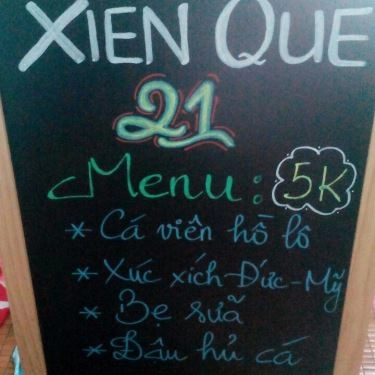 XIEN QUE
21
Menu: 5K
* Cá viên hồ lô
* Xúc xích Đức-Mỹ
* Bẹ sưã
* Đậu hủ cá